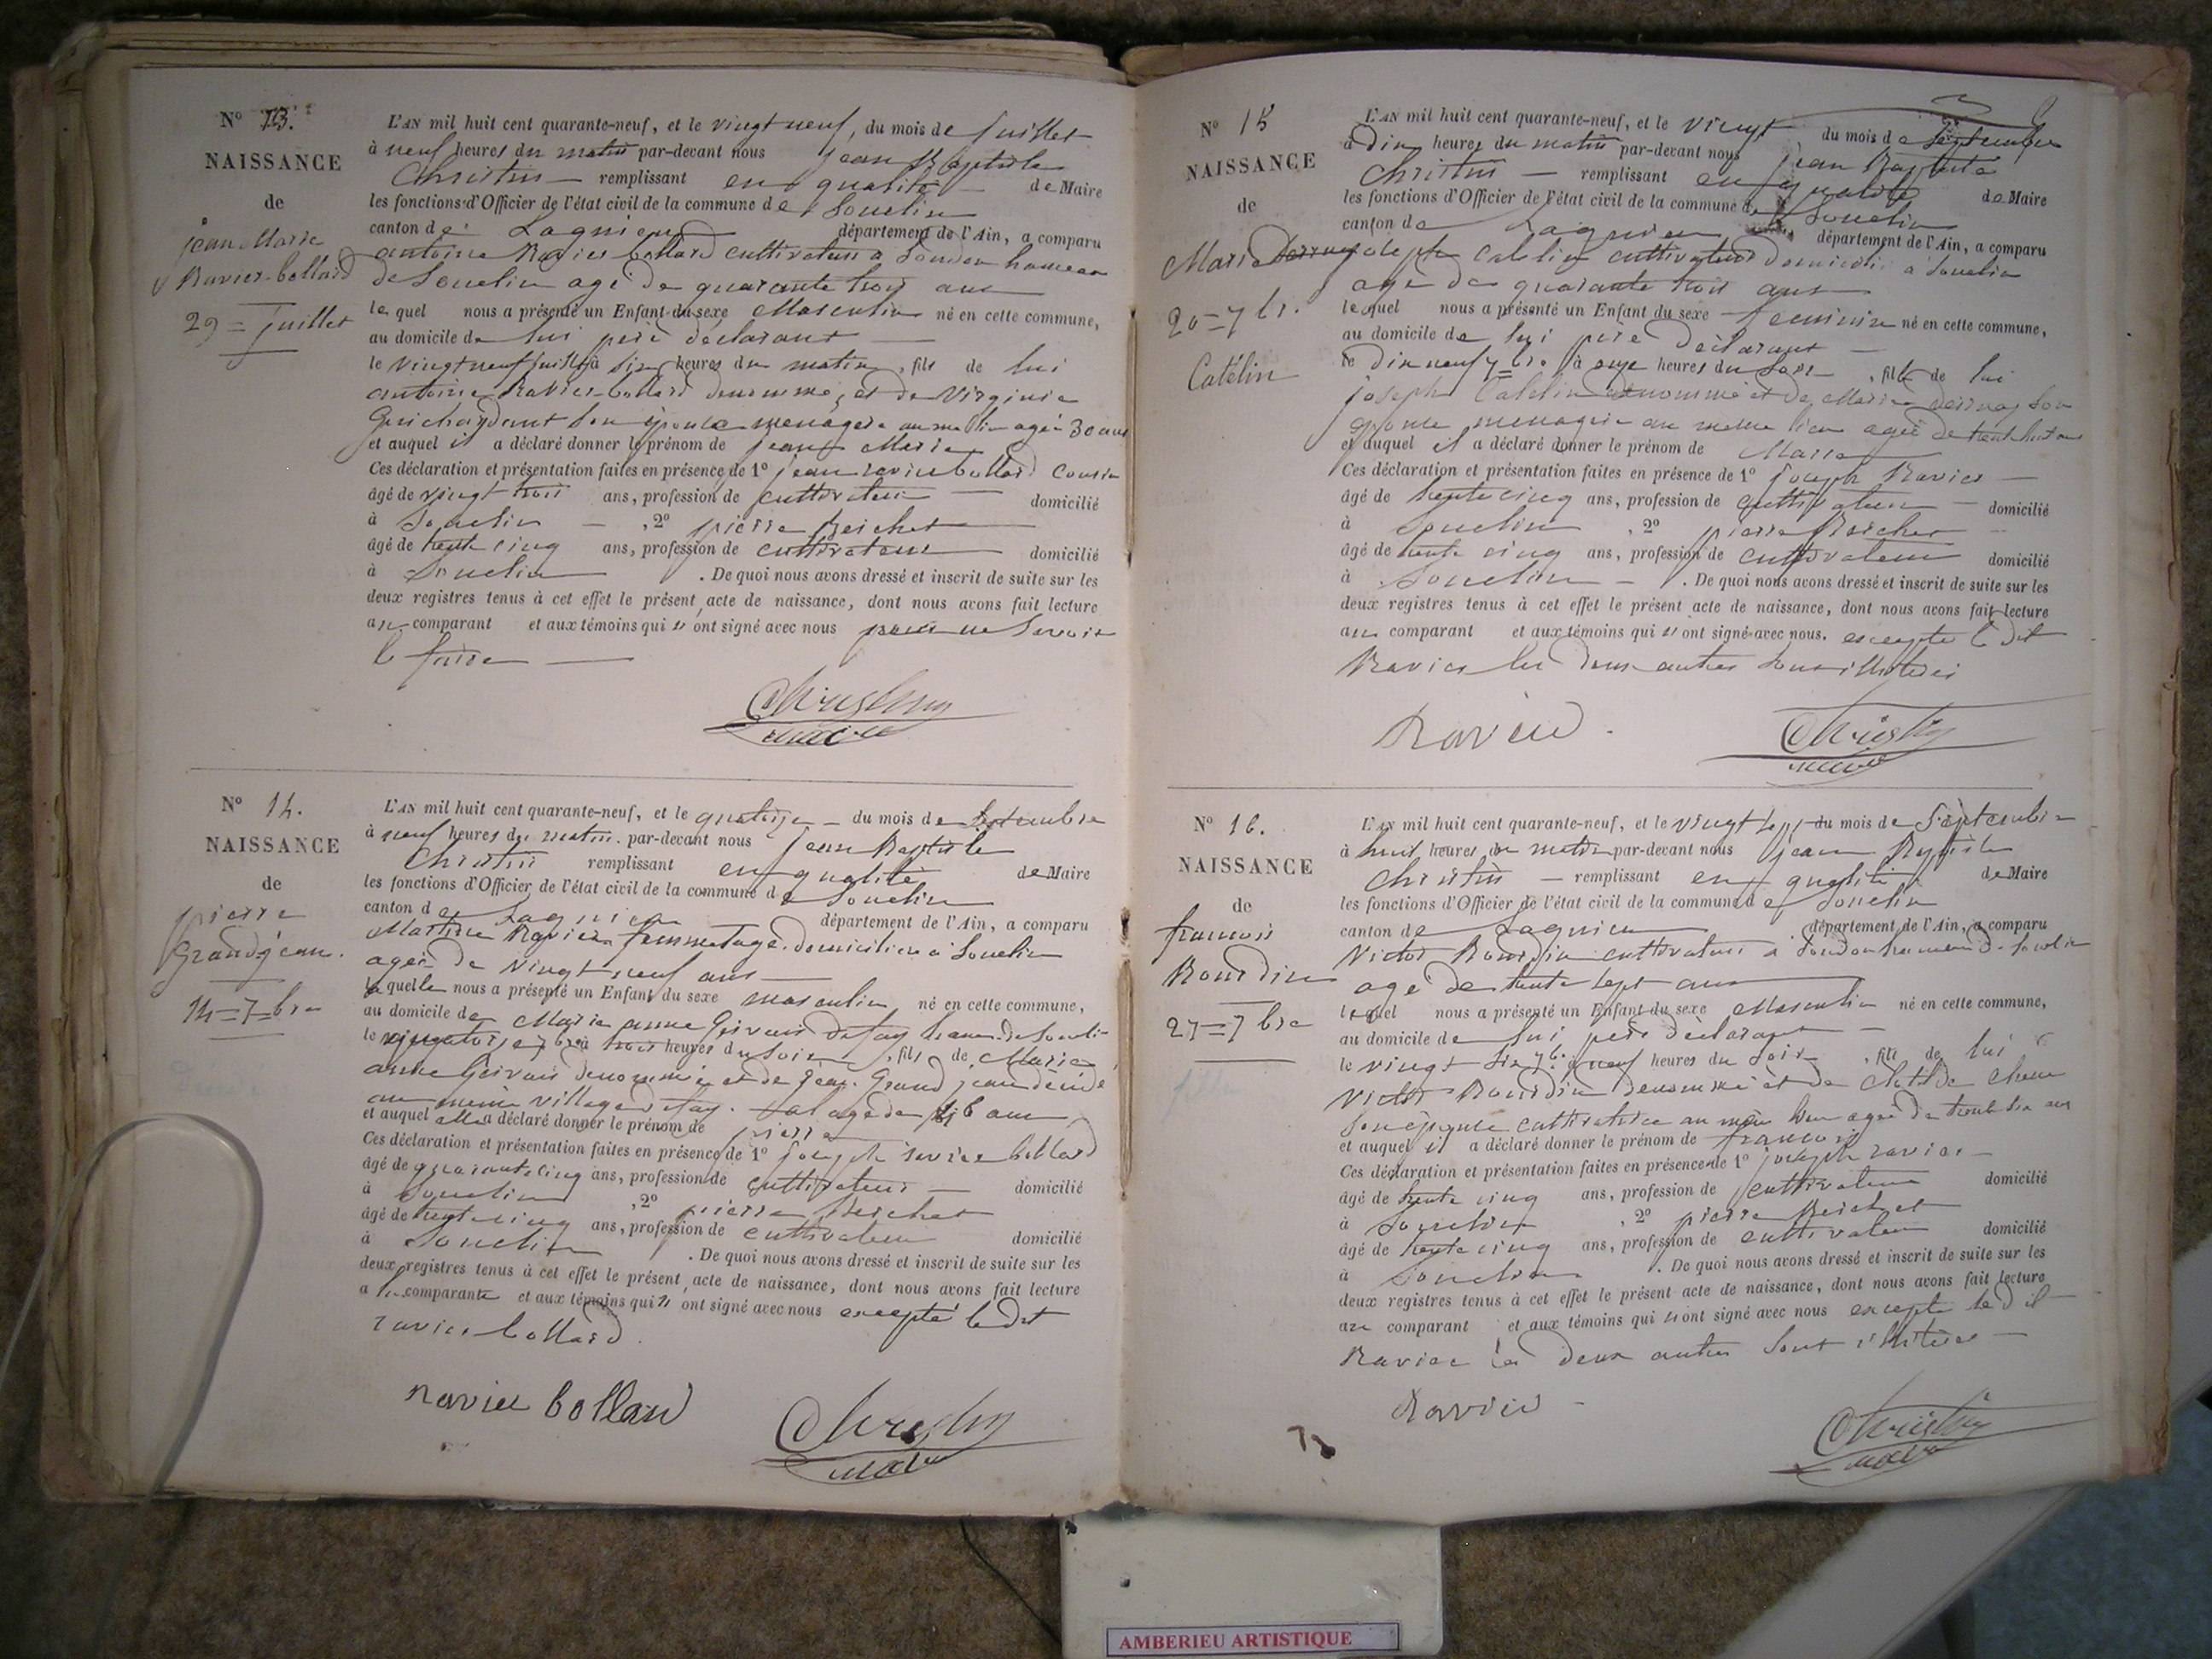 N° 13.
NAISSANCE
de
jean Marie
Ravier-bollard
29 = juillet
L'AN mil huit cent quarante-neuf, et le vingt neuf, du mois de juillet
à neuf heures du matin par-devant nous jean Baptiste
Christin — remplissant en qualité — de Maire
les fonctions d'Officier de l'état civil de la commune de Souclin
canton de Lagnieu département de l'Ain, a comparu
antoine Ravier bollard cultivateur a Soudon hameau
de Souclin agé de quarante trois ans
le quel nous a présenté un Enfant du sexe Masculin né en cette commune,
au domicile de lui père déclarant —
le vingt neuf juillet à six heures du matin, fils de lui
antoine Ravier-bollard denommé, et de Virginie
son épouse menagere au me lieu agée 30 ans
et auquel il a déclaré donner le prénom de jean Marie
Ces déclaration et présentation faites en présence de 1° jean ravier bollard cousin
âgé de vingt trois ans, profession de cultivateur — domicilié
à Souclin — , 2° pierre Reichet
âgé de trente cinq ans, profession de cultivateur domicilié
à Souclin . De quoi nous avons dressé et inscrit de suite sur les
deux registres tenus à cet effet le présent acte de naissance, dont nous avons fait lecture
au comparant et aux témoins qui n'ont signé avec nous pour ne savoir
le faire —
Christin
maire
N° 14.
NAISSANCE
de
pierre
Grandjean.
14 = 7 = bre
L'AN mil huit cent quarante-neuf, et le quatorze — du mois de Septembre
à neuf heures du matin par-devant nous jean Baptiste
Christin remplissant en qualité de Maire
les fonctions d'Officier de l'état civil de la commune de Souclin
canton de Lagnieu département de l'Ain, a comparu
Martine Ravier femme domiciliée a Souclin
agée de vingt neuf ans —
la quelle nous a présenté un Enfant du sexe masculin né en cette commune,
au domicile de Marie anne Gervais
le quatorze 7bre à trois heures du Soir, fils de Marie
anne Gervais denommée et de jean Grand jean
au même village
et auquel elle a déclaré donner le prénom de pierre
Ces déclaration et présentation faites en présence de 1° joseph ravier bollard
âgé de quarante cinq ans, profession de cultivateur — domicilié
à Souclin , 2° pierre Reichet
âgé de trente cinq ans, profession de cultivateur domicilié
à Souclin . De quoi nous avons dressé et inscrit de suite sur les
deux registres tenus à cet effet le présent acte de naissance, dont nous avons fait lecture
a la comparante et aux témoins qui n'ont signé avec nous excepté le dit
ravier bollard.
ravier bollard
Christin
maire
N° 15
NAISSANCE
de
Marie
20 = 7 br.
Catélin
L'AN mil huit cent quarante-neuf, et le vingt du mois de Septembre
à dix heures du matin par-devant nous jean Baptiste
Christin — remplissant en qualité de Maire
les fonctions d'Officier de l'état civil de la commune de Souclin
canton de Lagnieu département de l'Ain, a comparu
joseph Catelin cultivateur domicilié a Souclin
agé de quarante trois ans
le quel nous a présenté un Enfant du sexe feminin né en cette commune,
au domicile de lui père déclarant —
le dix neuf 7=bre à onze heures du Soir, fille de lui
joseph Catelin denommé et de Marie son
épouse menagère au meme lieu agée de trente huit ans
et auquel il a déclaré donner le prénom de Marie
Ces déclaration et présentation faites en présence de 1° joseph Ravier —
âgé de trente cinq ans, profession de cultivateur — domicilié
à Souclin , 2° pierre Reichet
âgé de trente cinq ans, profession de cultivateur domicilié
à Souclin — . De quoi nous avons dressé et inscrit de suite sur les
deux registres tenus à cet effet le présent acte de naissance, dont nous avons fait lecture
au comparant et aux témoins qui n'ont signé avec nous. excepté le dit
Ravier les deux autres sont illitérés
Ravier.
Christin
maire
N° 16.
NAISSANCE
de
francois
Bourdin
27 = 7 bre
L'AN mil huit cent quarante-neuf, et le vingt sept du mois de Septembre
à huit heures du matin par-devant nous jean Baptiste
Christin — remplissant en qualité de Maire
les fonctions d'Officier de l'état civil de la commune de Souclin
canton de Lagnieu département de l'Ain, a comparu
Victor Bourdin cultivateur a Soudon hameau de Souclin
agé de trente sept ans
le quel nous a présenté un Enfant du sexe Masculin né en cette commune,
au domicile de lui père déclarant —
le vingt six 7b. à neuf heures du Soir, fils de lui
Victor Bourdin denommé et de Clotilde
son épouse cultivatrice au même lieu agée de
et auquel il a déclaré donner le prénom de francois
Ces déclaration et présentation faites en présence de 1° joseph ravier —
âgé de trente cinq ans, profession de cultivateur domicilié
à Souclin , 2° pierre Reichet
âgé de trente cinq ans, profession de cultivateur domicilié
à Souclin . De quoi nous avons dressé et inscrit de suite sur les
deux registres tenus à cet effet le présent acte de naissance, dont nous avons fait lecture
au comparant et aux témoins qui n'ont signé avec nous excepté le dit
Ravier les deux autres sont illitérés —
Ravier
Christin
maire
AMBERIEU ARTISTIQUE